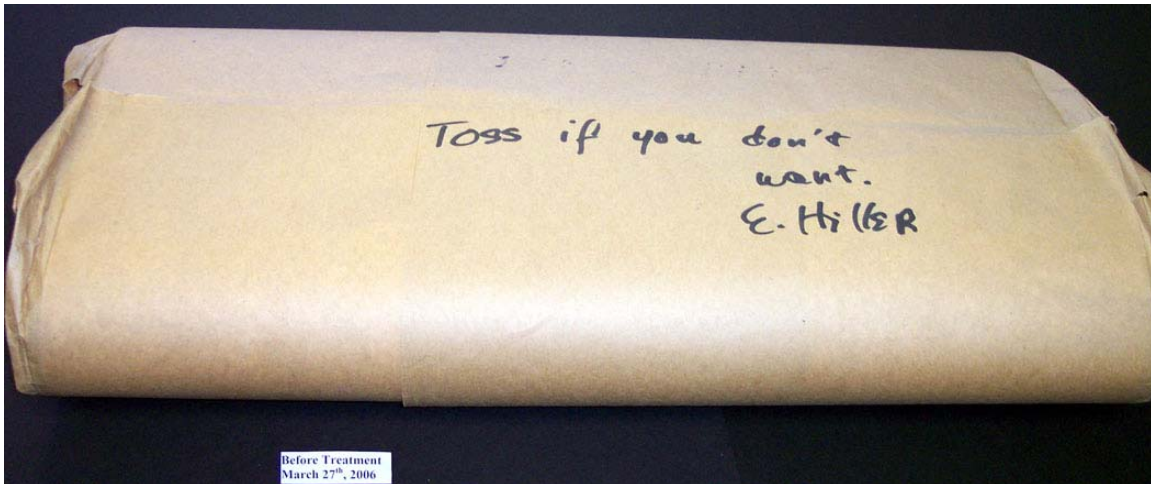 Toss if you don't
want.
E. Hiller
Before Treatment
March 27th, 2006